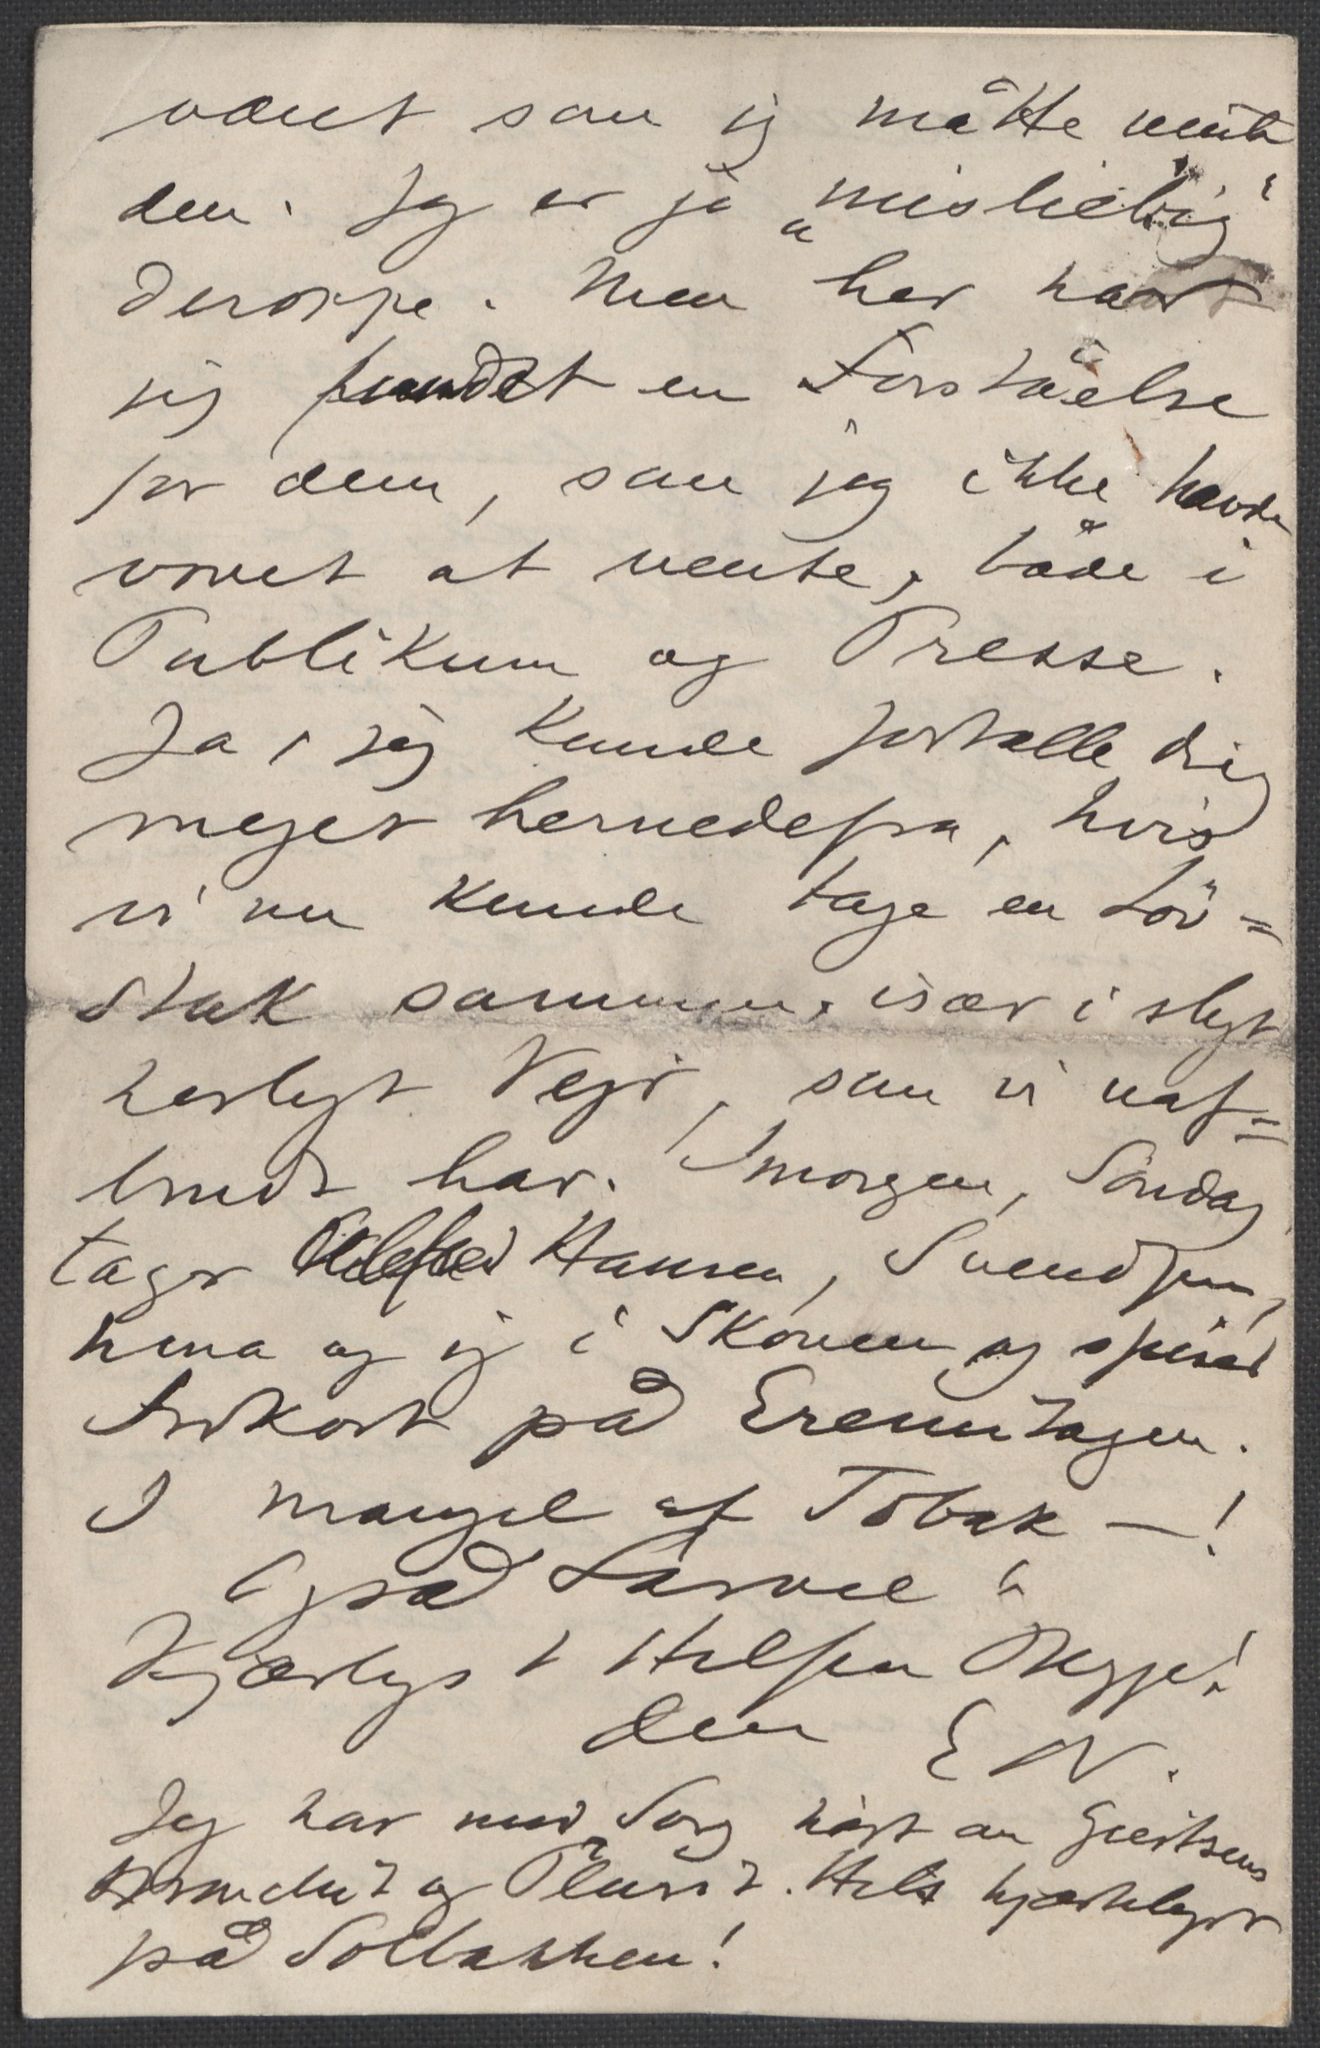 været som jeg måtte vente
den. Jeg er jo „misliebig“
deroppe. Men her har
jeg fundet en Forståelse
for dem, som jeg ikke havde
vovet at vente, både i
Publikum og Presse.
Ja, jeg kunde fortælle dig
meget hernedefra, hvis
vi nu kunde tage en Löv=
stak sammen, især i sligt
herligt Vejr, som vi net=
havt har. Imorgen, Søndag
tager Hansen, Svendsen,
Nina og jeg i Skoven og spiser
Frokost på Eremitagen.
I mangel af Tobak — !
Også Farvel!
Kjærligst Hilsen Begge!
Din E
Jeg har med Sorg hørt om Geertsens
Bronchit og Pleurit. Hils hjerteligst
på Solbakken!